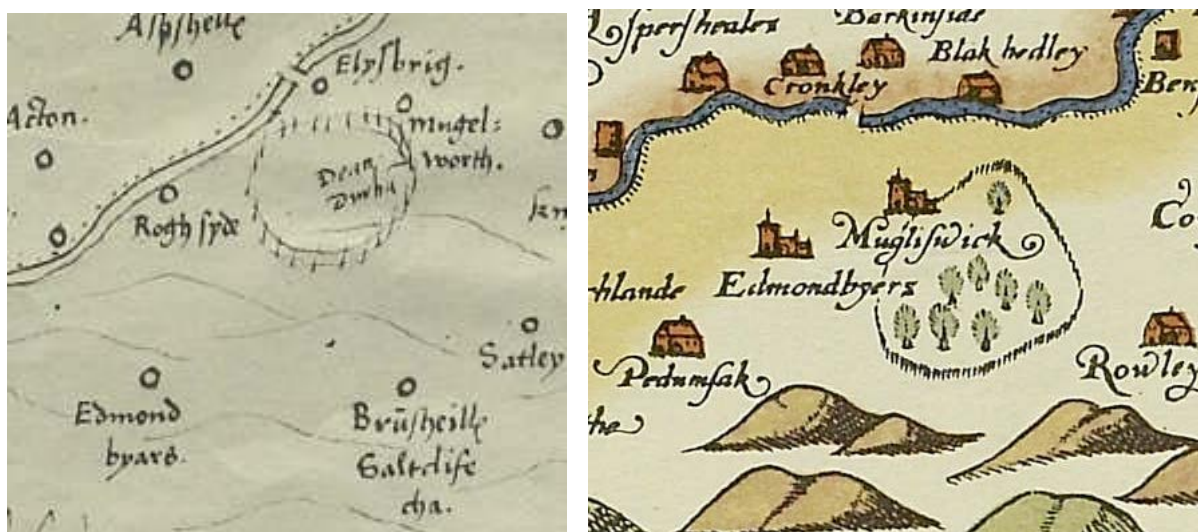 Aspshelle
Elysbrig.
Acton.
mugel=
worth.
Dean
Durha
Rogh syde
Satley
Edmond
byars.
Brūsheille
Saltclife
cha.
Spersheales
Barkinside
Blakhedley
Cronkley
Ben
Mugliswick
Edmondbyers
hlande
Co
Pedumsak
Rowley
the